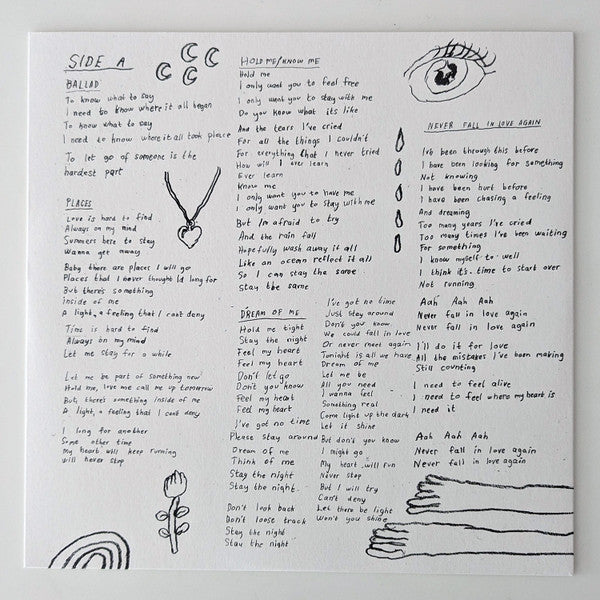 SIDE A
BALLAD
To know what to say
I need to know where it all began
To know what to say
I need to know where it all took place
To let go of someone is the
hardest part
PLACES
Love is hard to find
Always on my mind
Summers here to stay
Wanna get away
Baby there are places I will go
Places that I never thought I'd long for
But there's something
inside of me
A light, a feeling that I cant deny
Time is hard to find
Always on my mind
Let me stay for a while
Let me be part of something new
Hold me, love me call me up tomorrow
But, there's something inside of me
A light, a feeling that I cant deny
I long for another
Some other time
My heart will keep running
will never stop
HOLD ME/KNOW ME
Hold me
I only want you to feel free
I only want you to stay with me
Do you know what its like
And the tears I've cried
For all the things I couldn't
For everything that I never tried
How will I ever learn
Ever learn
Know me
I only want you to have me
I only want you to stay with me
But I'm afraid to try
And the rain fall
Hopefully wash away it all
Like an ocean reflect it all
So I can stay the same
Stay the same
DREAM OF ME
Hold me tight
Stay the night
Feel my heart
Feel my heart
Don't let go
Don't you know
Feel my heart
Feel my heart
I've got no time
Please stay around
Dream of me
Think of me
Stay the night
Stay the night
Don't look back
Don't loose track
Stay the night
Stay the night
I've got no time
Just stay around
Don't you know
We could fall in love
Or never meet again
Tonight is all we have
Dream of me
Let me be
All you need
I wanna feel
Something real
Come light up the dark
Let it shine
But don't you know
I might go
My heart will run
Never stop
But I will try
Can't deny
Let there be light
Won't you shine
NEVER FALL IN LOVE AGAIN
I've been through this before
I have been looking for something
Not knowing
I have been hurt before
I have been chasing a feeling
And dreaming
Too many years I've cried
Too many times I've been waiting
For something
I know myself to well
I think it's time to start over
Not running
Aah Aah Aah
Never fall in love again
Never fall in love again
I'll do it for love
All the mistakes I've been making
Still counting
I need to feel alive
I need to feel where my heart is
I need it
Aah Aah Aah
Never fall in love again
Never fall in love again